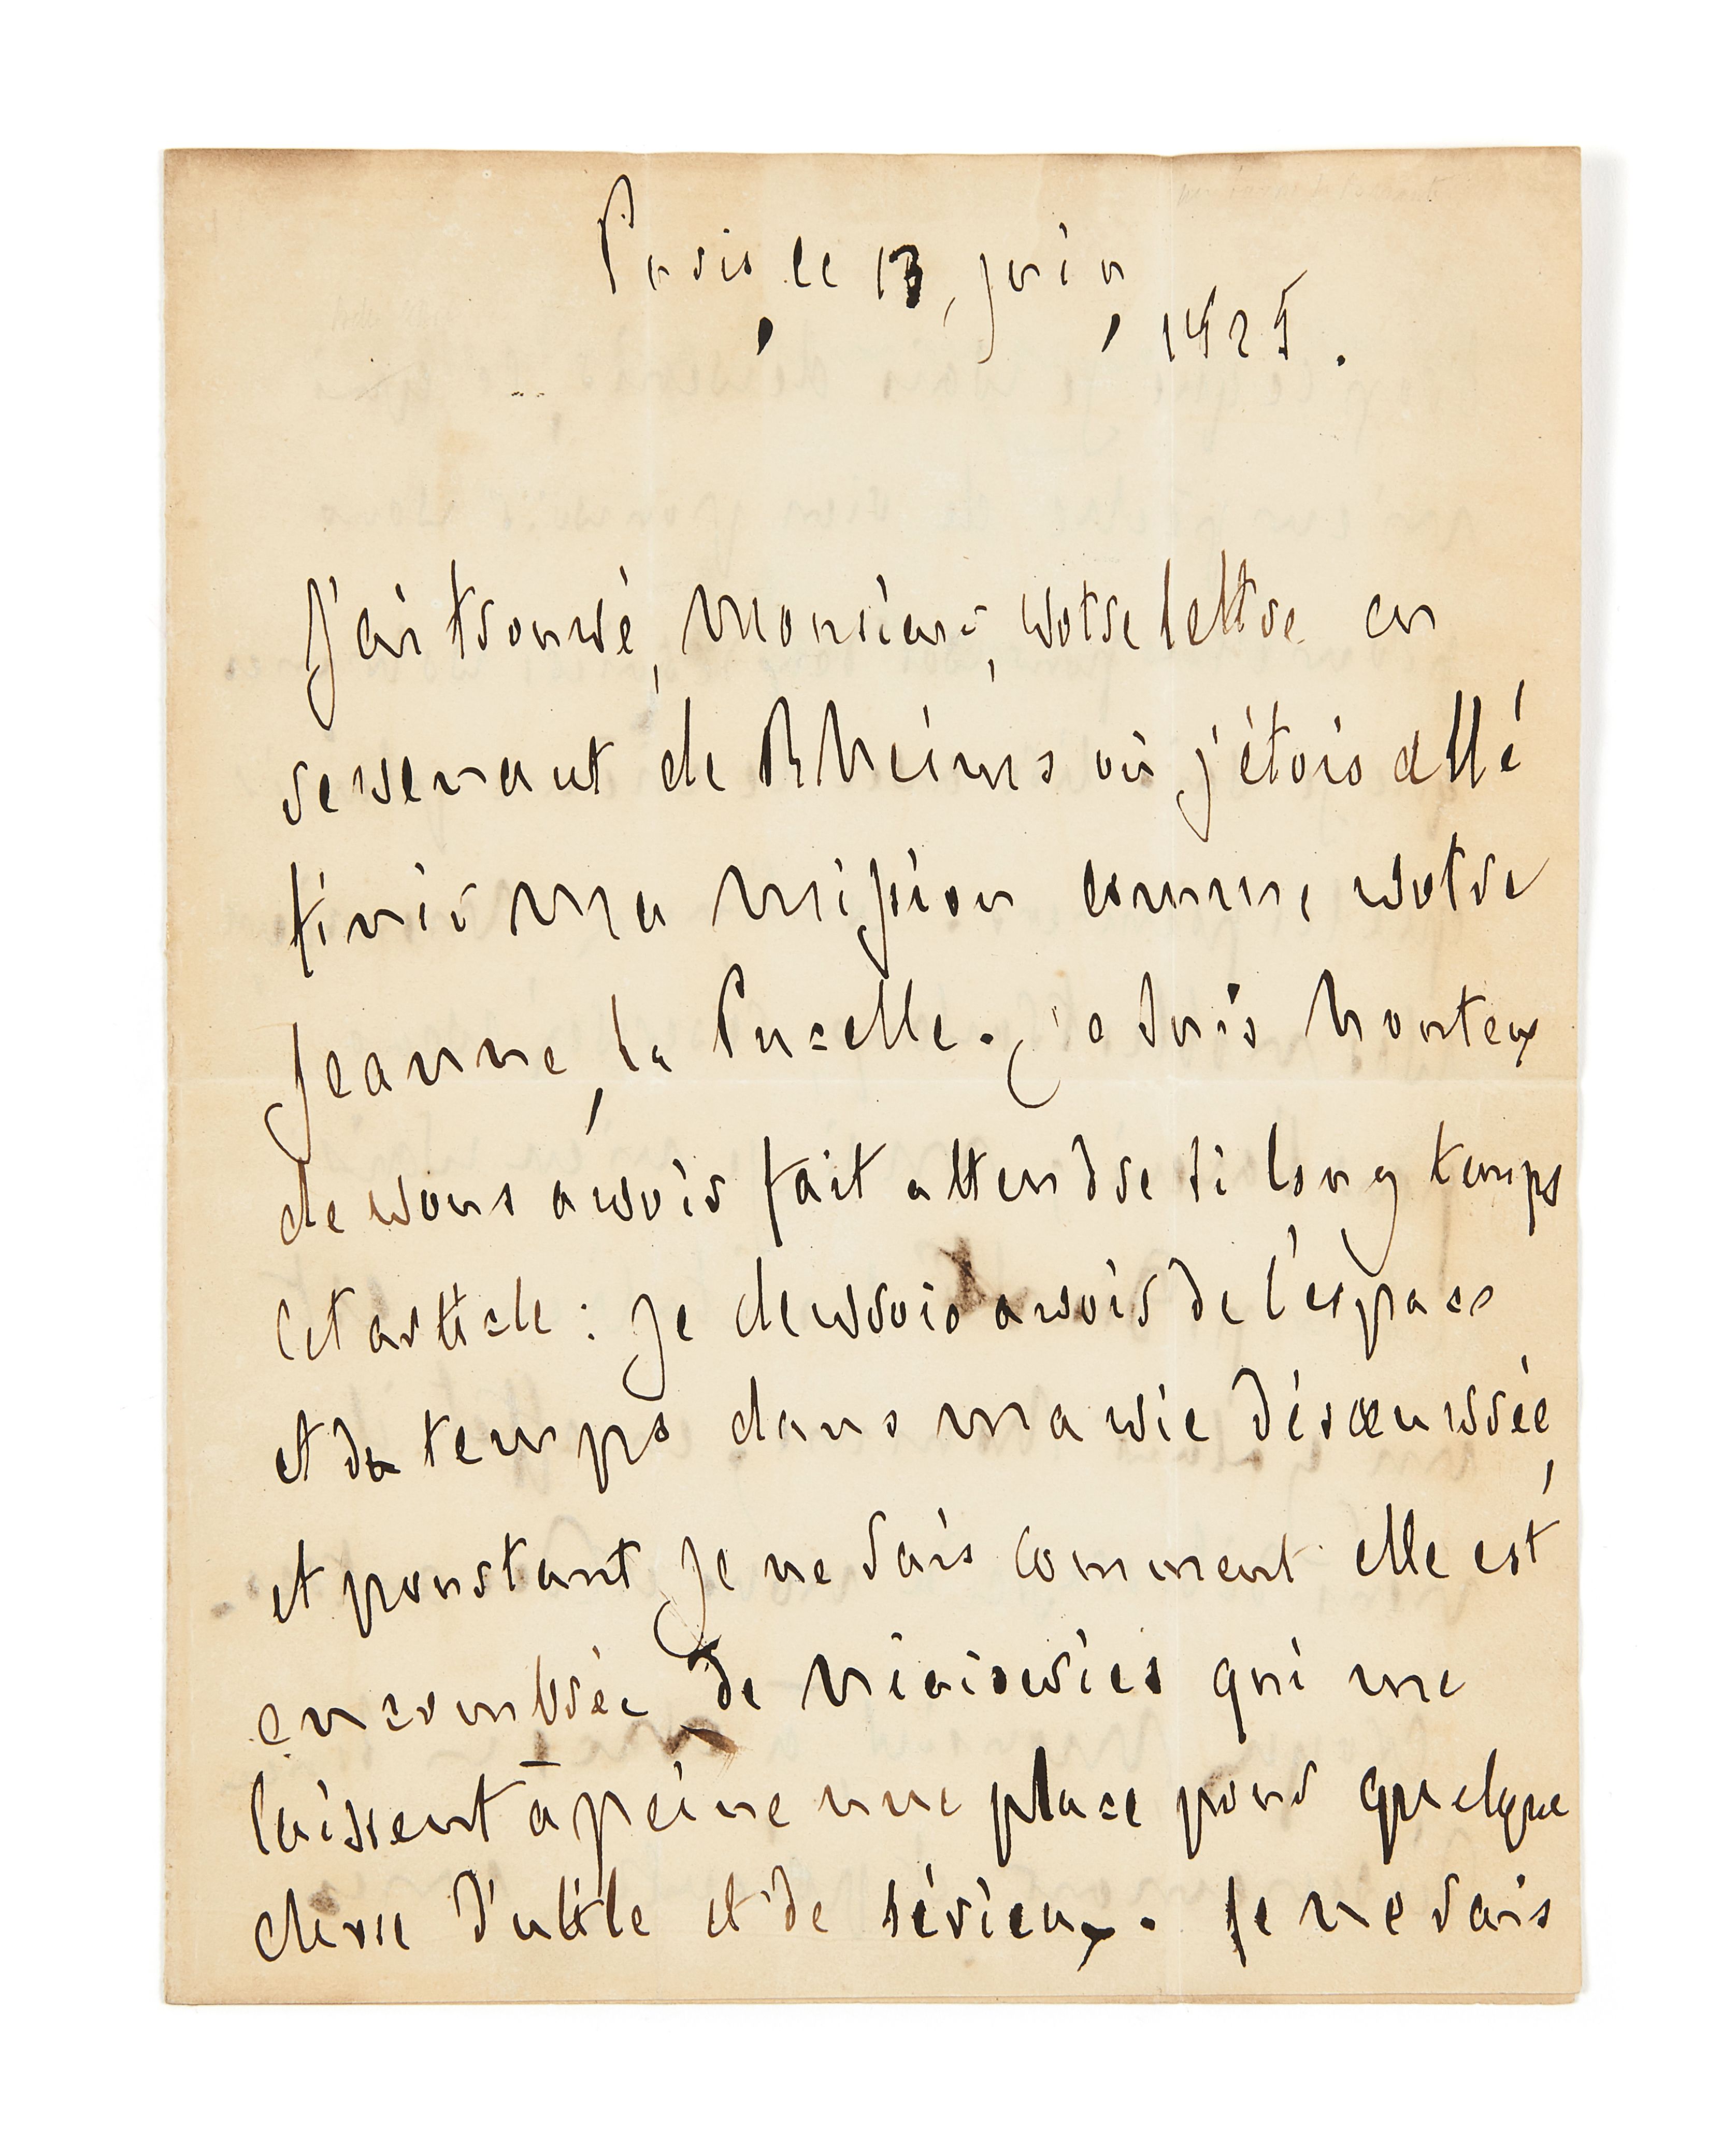 Paris, le 13, juin, 1825.
J'ai trouvé, Monsieur, votre lettre en
revenant de Rheims où j'étois allé
finir ma mission comme votre
Jeanne, la Pucelle. je suis honteux
de vous avoir fait attendre si long temps
cet article : je devrois avoir de l'espace
et du temps dans ma vie désœuvrée,
et pourtant je ne sais comment elle est
encombrée de niaiseries qui me
laissent à peine une place pour quelque
chose d'utile et de sérieux. Je ne sais